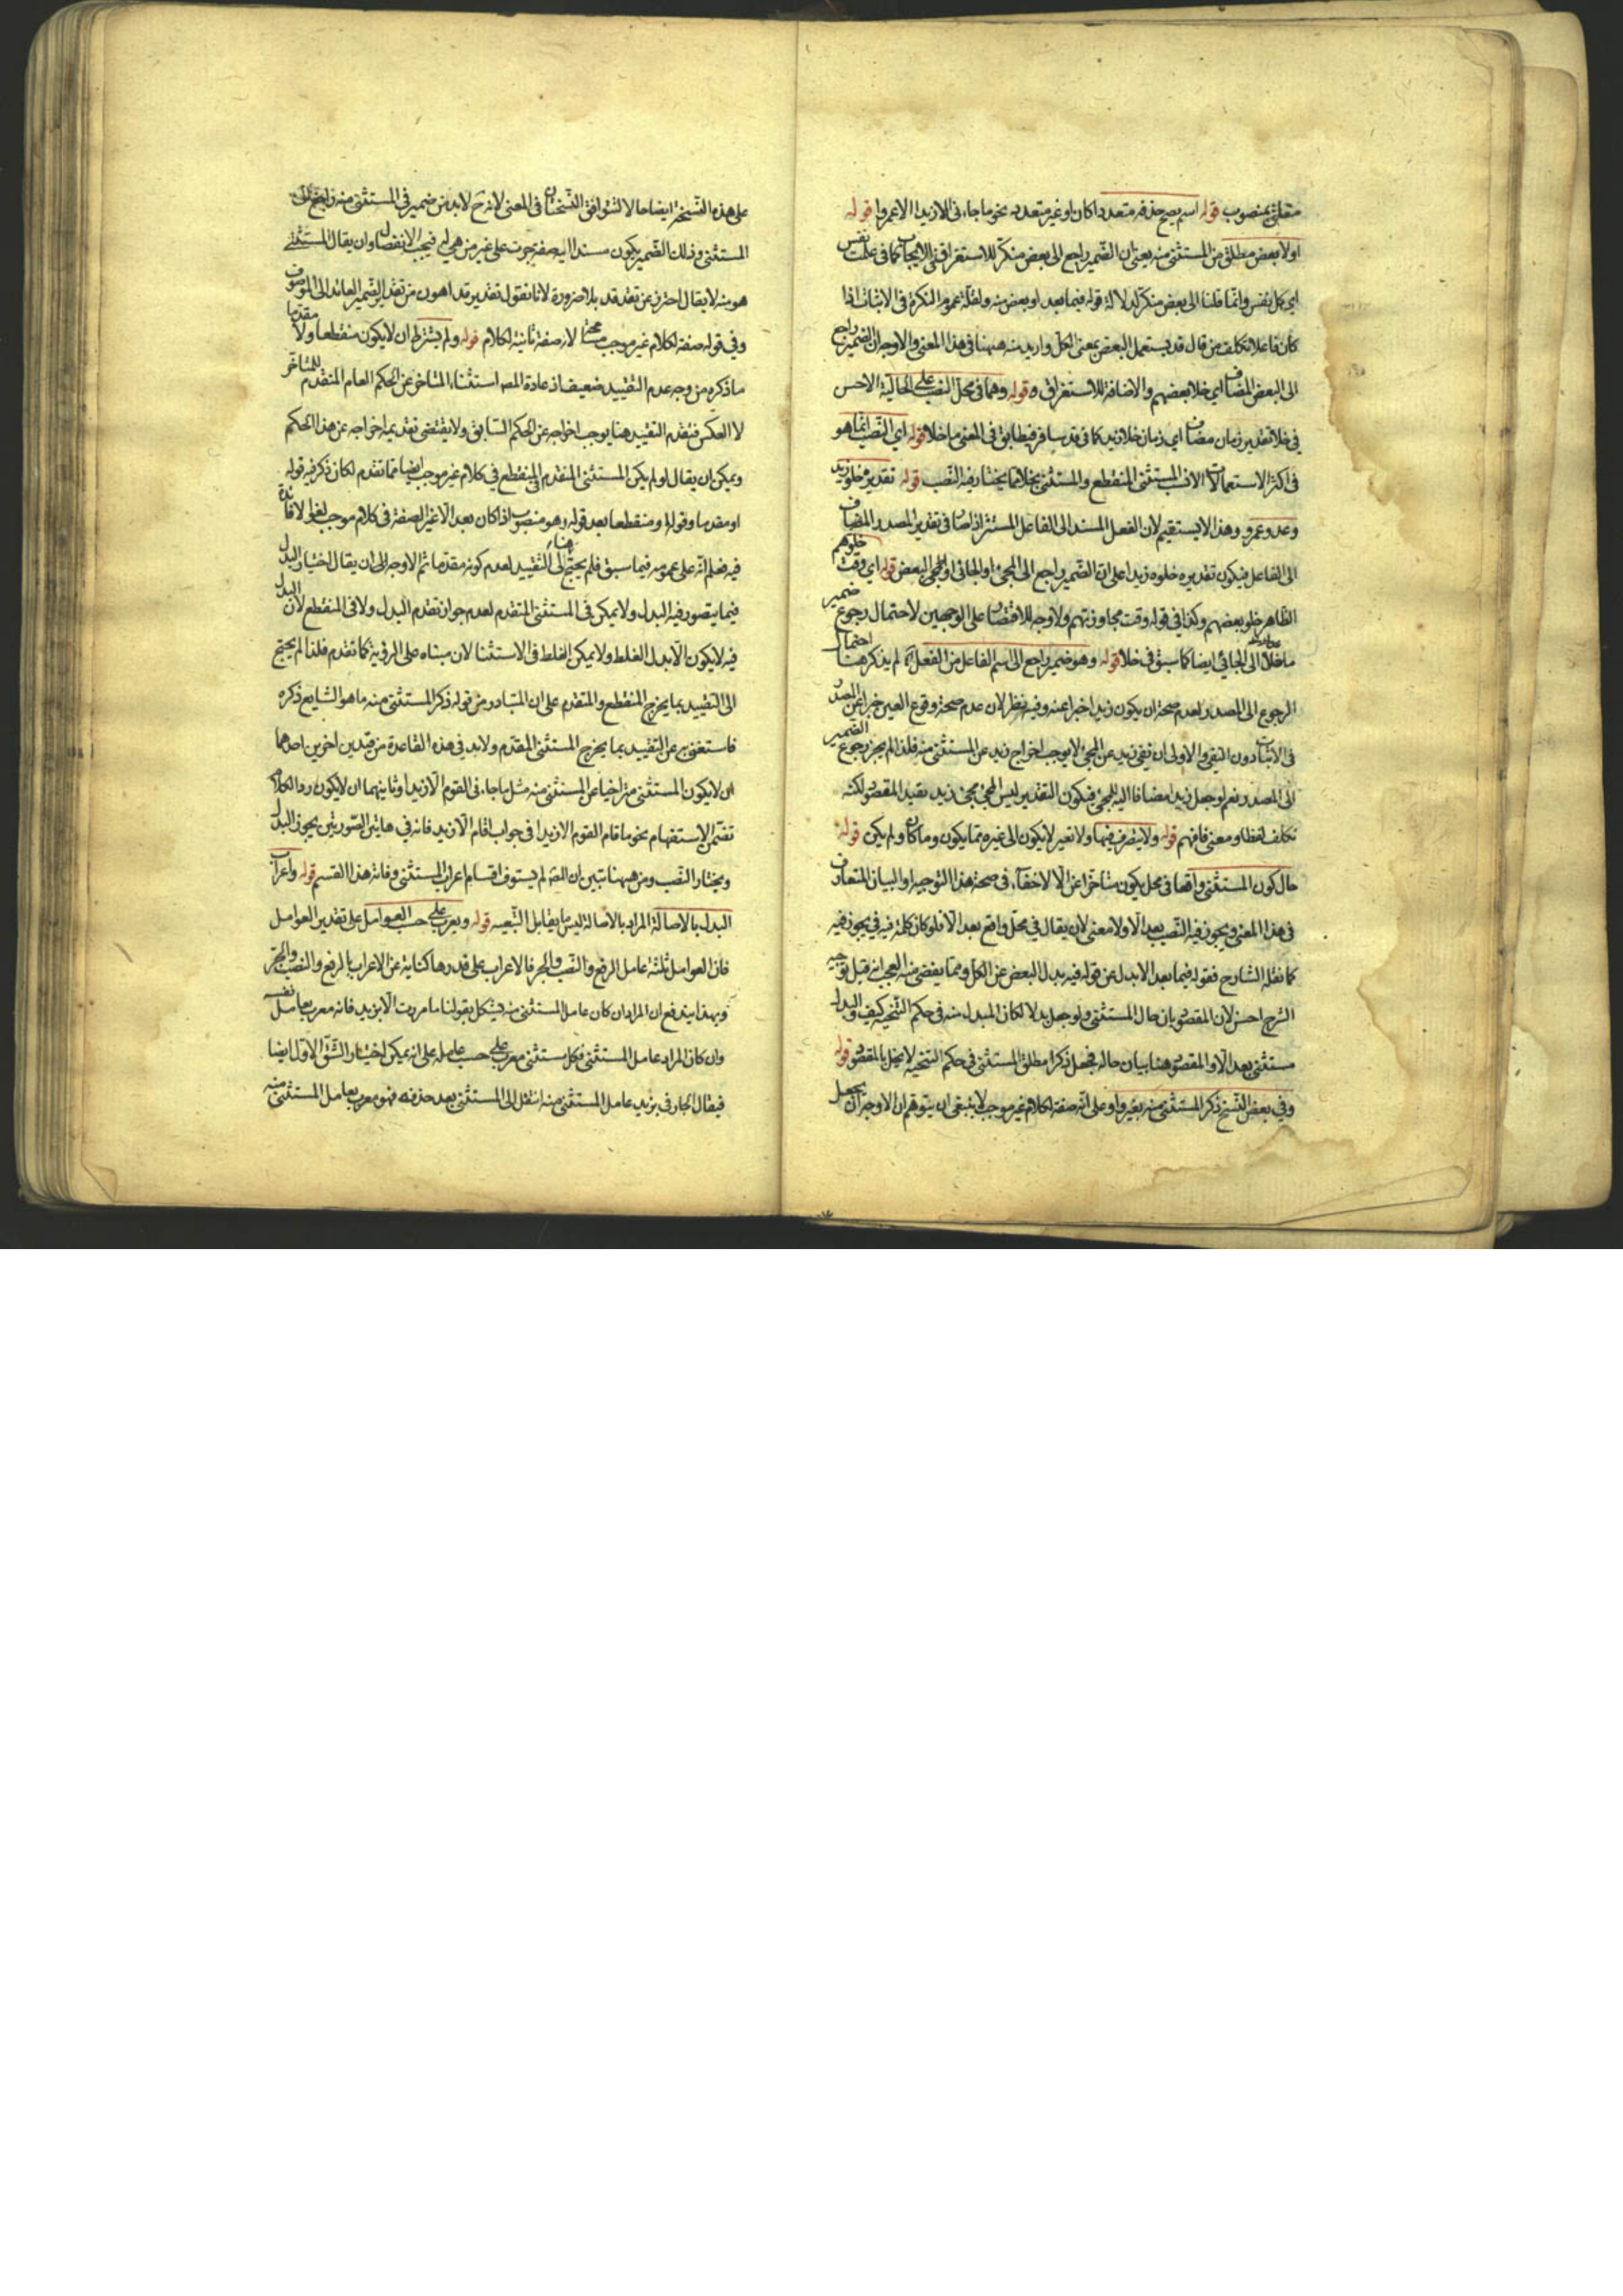 متعلق بمنصوب قوله اسم يصح حذفه متعددا كان او غير متعدد نحو ما جاءنى الا زيدا الا عمروا قوله
او لا بعض مطلق من المستثنى منه يعنى ان الضمير راجع الى بعض منكر للاستغراق فى الايجاب كما فى علمت نفس
اى كل نفس وانما قلنا الى بعض منكر لدلالة قوله فيما بعد او بعض منه ولقلة عموم النكرة فى الاثبات اذا
كان فاعلا تكلف من قال قد يستعمل البعض بمعنى الكل واريد منه ههنا فى هذا المعنى والاوجه ان الضمير راجع
الى البعض المضاف اى خلا بعضهم والاضافة للاستغراق قوله وهما فى محل النصب على الحالية الاحسن
فى خلا تقدير زمان مضاف اى زمان خلا زيد كما فى قد سافر فيطابق فى المعنى ما خلا قوله اى النصب انما هو
فى اكثر الاستعمالات الانسب المستثنى المنقطع والمستثنى بخلا مما يختار فيه النصب قوله تقديره خلو زيد
وعدو عمرو وهذا لا يستقيم لان الفعل المسند الى الفاعل المستتر اذا صار فى تقدير المصدر المضاف
الى الفاعل فيكون تقديره خلوه زيدا على ان الضمير راجع الى المجئ او الجائى او الى البعض قوله اى وقت خلوهم
الظاهر خلو بعضهم وكذا فى قوله وقت مجاوزتهم ولا وجه للاقتصار على الوجهين لاحتمال رجوع ضمير
ما خلا الى الجائى ايضا كما سبق فى خلا قوله وهو ضمير راجع الى اسم الفاعل من الفعل لم يذكر هنا احتمال
الرجوع الى المصدر لعدم صحة ان يكون زيد اخبرا عنه وفيه نظر لان عدم صحة وقوع العين خبرا عن المصدر
فى الاثبات دون النفى والاولى ان نفى زيد عن المجئ لا يوجب اخراج زيد عن المستثنى منه فلذا لم يجز رجوع الضمير
الى المصدر نعم لو جعل زيد مضافا اليه للمجئ فيكون التقدير ليس المجئ مجئ زيد يفيد المقصود لكنه
تكلف لفظا ومعنى فافهم قوله ولا يتصرف فيها ولا تغير لا يكون الى غيره مما يكون وما كان ولم يكن قوله
حال كون المستثنى واقعا فى محل يكون متأخرا عن الا لا خفاء فى صحة هذا التوجيه او البيان المتعارف
فى هذا المعنى ويجوز فيه النصب بعد الا ولا معنى لان يقال فى محل واقع بعد الا فلو كان كلمة فيه فى يجوز فيه
كما نقله الشارح فقوله فيما بعد الا بدل عن قوله فيه بدل البعض عن الكل ومما يقضى منه العجب انه قيل توجيه
الشرح احسن لان المقصود بيان حال المستثنى ولو جعل بدلا لكان المبدل منه فى حكم التنحية كيف والبدل
مستثنى بعد الا والمقصود هنا بيان حاله فجعل ذكر مطلق المستثنى فى حكم التنحية لا يخل بالمقصود قوله
وفى بعض النسخ ذكر المستثنى منه بغير واو على انه صفة لكلام غير موجب لا ينبغى ان يتوهم ان الاوجه ان يجعل
على هذه النسخة ايضا حالا لتتوافق النسختان فى المعنى لانه ح لا بد من ضمير فى المستثنى منه راجع الى
المستثنى وذلك الضمير يكون مسندا اليه صفة جرت على غير من هى له فيجب الانفصال وان يقال المستثنى
هو منه لا يقال احترز عن تقدير قد بلا ضرورة لانا نقول تقدير قد اهون من تقدير الضمير العائد الى الموصوف
وفى قوله صفة لكلام غير موجب لانه صفة ثانية لكلام قوله ولم يشترط ان لا يكون منقطعا ولا مقدما
ما ذكره من وجه عدم التقييد ضعيف اذ عادة المص استثناء المتأخر عن الحكم العام المتقدم للمتأخر
لا العكس فتقدم التقييد هنا يوجب اخراجه عن الحكم السابق ولا يقتضى تقديمه اخراجه عن هذا الحكم
ويمكن ان يقال لو لم يكن المستثنى المتقدم او المنقطع فى كلام غير موجب ايضا مما تقدم لكان ذكر فيه قوله
او مقدما وقوله او منقطعا بعد قوله وهو منصوب اذا كان بعد الا غير الصفة فى كلام موجب لغوا لا فائدة
فيه فعلم انه على عمومه فيما سبق فلم يحتج الى التقييد هنا لعدم كونه مقدما ثم الاوجه الى ان يقال اختيار البدل
فيما يتصور فيه البدل ولا يمكن فى المستثنى المتقدم لعدم جواز تقدم البدل ولا فى المنقطع لان البدل
فيه لا يكون الا بدل الغلط ولا يمكن الغلط فى الاستثناء لان مبناه على الروية كما تقدم فلذا لم يحتج
الى التقييد بما يخرج المنقطع والمتقدم على ان المتبادر من قوله ذكر المستثنى منه ما هو الشايع ذكره
فاستغنى به عن التقييد بما يخرج المستثنى المقدم ولا بد فى هذه القاعدة من قيدين اخرين احدهما
ان لا يكون المستثنى متراخيا عن المستثنى منه مثل ما جاءنى القوم الا زيدا وثانيهما ان لا يكون رد الكلام
تضمن الاستفهام نحو ما قام القوم الا زيدا فى جواب اقام الا زيد فانه فى هاتين الصورتين يجوز البدل
ويختار النصب ومن ههنا تبين ان المص لم يستوف اقسام اعراب المستثنى وفاته هذا القسم قوله واعراب
البدل بالاصالة المراد بالاصالة ليس ما يقابل التبعية قوله ويعرب على حسب العوامل على تقدير العوامل
فان العوامل ثلثة عامل الرفع والنصب والجر فالاعراب على قدرها كناية عن الاعراب بالرفع والنصب والجر
وبهذا يندفع ان المراد ان كان عامل المستثنى منه فيشكل بقولنا ما مررت الا بزيد فانه معرب بعامل نفسه
وان كان المراد عامل المستثنى فكل مستثنى معرب على حسب عامله على انه يمكن اختيار الشق الاول ايضا
فيقال الجار فى بزيد عامل المستثنى منه انتقل الى المستثنى بعد حذفه فهو معرب بعامل المستثنى منه